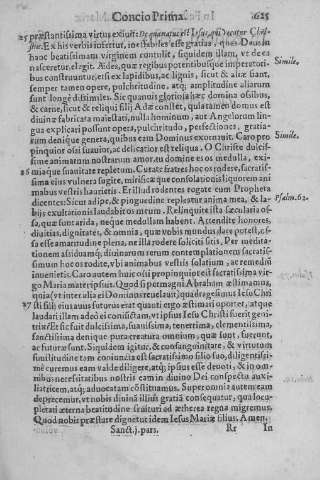 Concio Prima. 625
25 præstantissima virtus exiuit: De qua natus est Iesus, qui vocatur Christus
Ex his verbis infertur, has esse gratias, ques Deus in
hanc beatissimam virginem contulit, siquidem illam, vt dea
nasceretur, elegit. Ædes, quæ regibus potentibusque imperatori-
bus construuntur, etsi ex lapidibus, ac lignis, sicut & aliæ sunt,
semper tamen opere, pulchritudine, atq; amplitudine aliarum
sunt longè dissimiles. Sic quamuis gloriosa hæc domina ossibus,
& carne, sicut & reliqui filij Adæ constet, quia tamen domus est
diuinæ fabricata maiestati, nulla hominum, aut Angelorum lin-
gua explicari possunt opera, pulchritudo, perfectiones, gratia-
rum denique genera, quibus eam Dominus exornauit. Caro pro-
pinquior ossi suauior, ac delicatior est reliqua. O Christe dulcis-
sime animarum nostrarum amor, eu domine ei os medulla, exi-
26 miaque suauitate repletum. Curate fratres hoc os rodere, sacratis-
sima eius vulnera sugite, mirificæque consolationis liquorem ani-
mabus vestris haurietis. Er illud rodentes rogate cum Propheta
dicentes: Sicut adipe, & pinguedine repleatur anima mea, & la-
bijs exultationis laudabit os meum. Relinquite ista sæcularia os-
sa, quæ sunt arida, neque medullam habent. Attendite honores,
diuitias, dignitates, & omnia, quæ vobis mundus dare potest, os-
sa esse amaritudine plena, ne illa rodere soliciti sitis. Per medita-
tionem assiduam, diuinarum rerum contemplationem sacratis-
simum hoc os rodite, vbi animabus vestris solatium, ac remedium
inuenietis. Caro autem huic ossi propinquior est sacratissima vir-
go Maria mater ipsius. Quod si permagni Abraham æstimamus,
quia (vt inter alia ei Dominus reuelauit) quadragesimus Iesu Chri
27 sti filij eius auus futurus erat quanti ergo æstimari oportet, atque
laudari illam adeo ei coniunctam, vt ipsius Iesu Christi fuerit geni-
trix? Et sic fuit dulcissima, suauissima, tenerrima, clementissima,
sanctissima denique pura creatura omnium, quæ sunt, fuerunt,
ac futuræ sunt. Siquidem igitur, & consanguinitate, & virtutum
similitudine tam coniuncta est sacratissimo filio suo, diligentissi-
mè curemus eam valde diligere, atq; ipsi us esse deuoti, & in om-
nibus necessitatibus nostris eam in diuino Dei conspectu auxi-
liatricem, atq; aduocatam cōstituamus. Super omnia autem eam
deprecemur, vt nobis diuinā illius gratiā consequatur, qua locu-
pletati æterna beatitudine fruituri ad ætherea regna migremus.
Quod nobis præstare dignetur idem Iesus Mariæ filius. Amen.
Sanct. j. pars. Rr In
Simile.
Simile.
Psalm. 62.